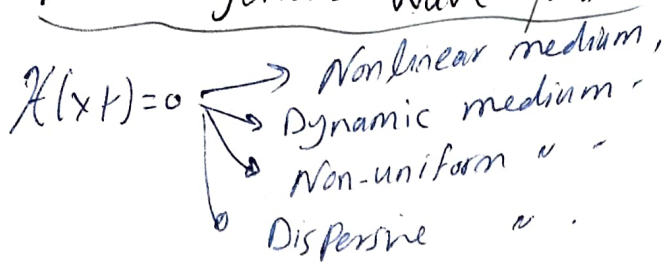 wave
𝓗(x t) = 0 → Nonlinear medium,
→ Dynamic medium -
→ Non-uniform " -
→ Dispersive " .